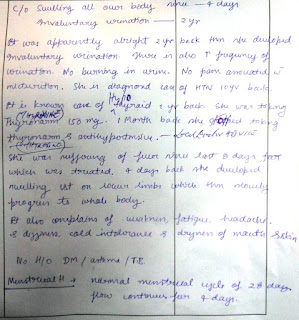 C/O Swelling all over body since — 4 days
Involuntary urination — 2 yr
Pt was apparently alright 2 yr back then she developed
Involuntary urination. There is also ↑ frequency of
urination. No burning in urine. No pain associated w
micturition. She is diagnosed case of HTN 10 yr back.
Hypo
It is known case of thyroid 1 yr back she was taking
Thyronorm 150 mg. 1 month back she stopped taking
thyronorm & antihypertensive.
She was suffering of fever since last 8 days
which was treated, 4 days back she developed
swelling 1st on lower limbs which then slowly
progress to whole body.
Pt also complains of weakness, fatigue, headache
& dizziness, cold intolerance & dryness of mouth & skin
No H/O DM / asthma / T.B.
Menstrual H → normal menstrual cycle of 28 days
flow continues for 4 days.